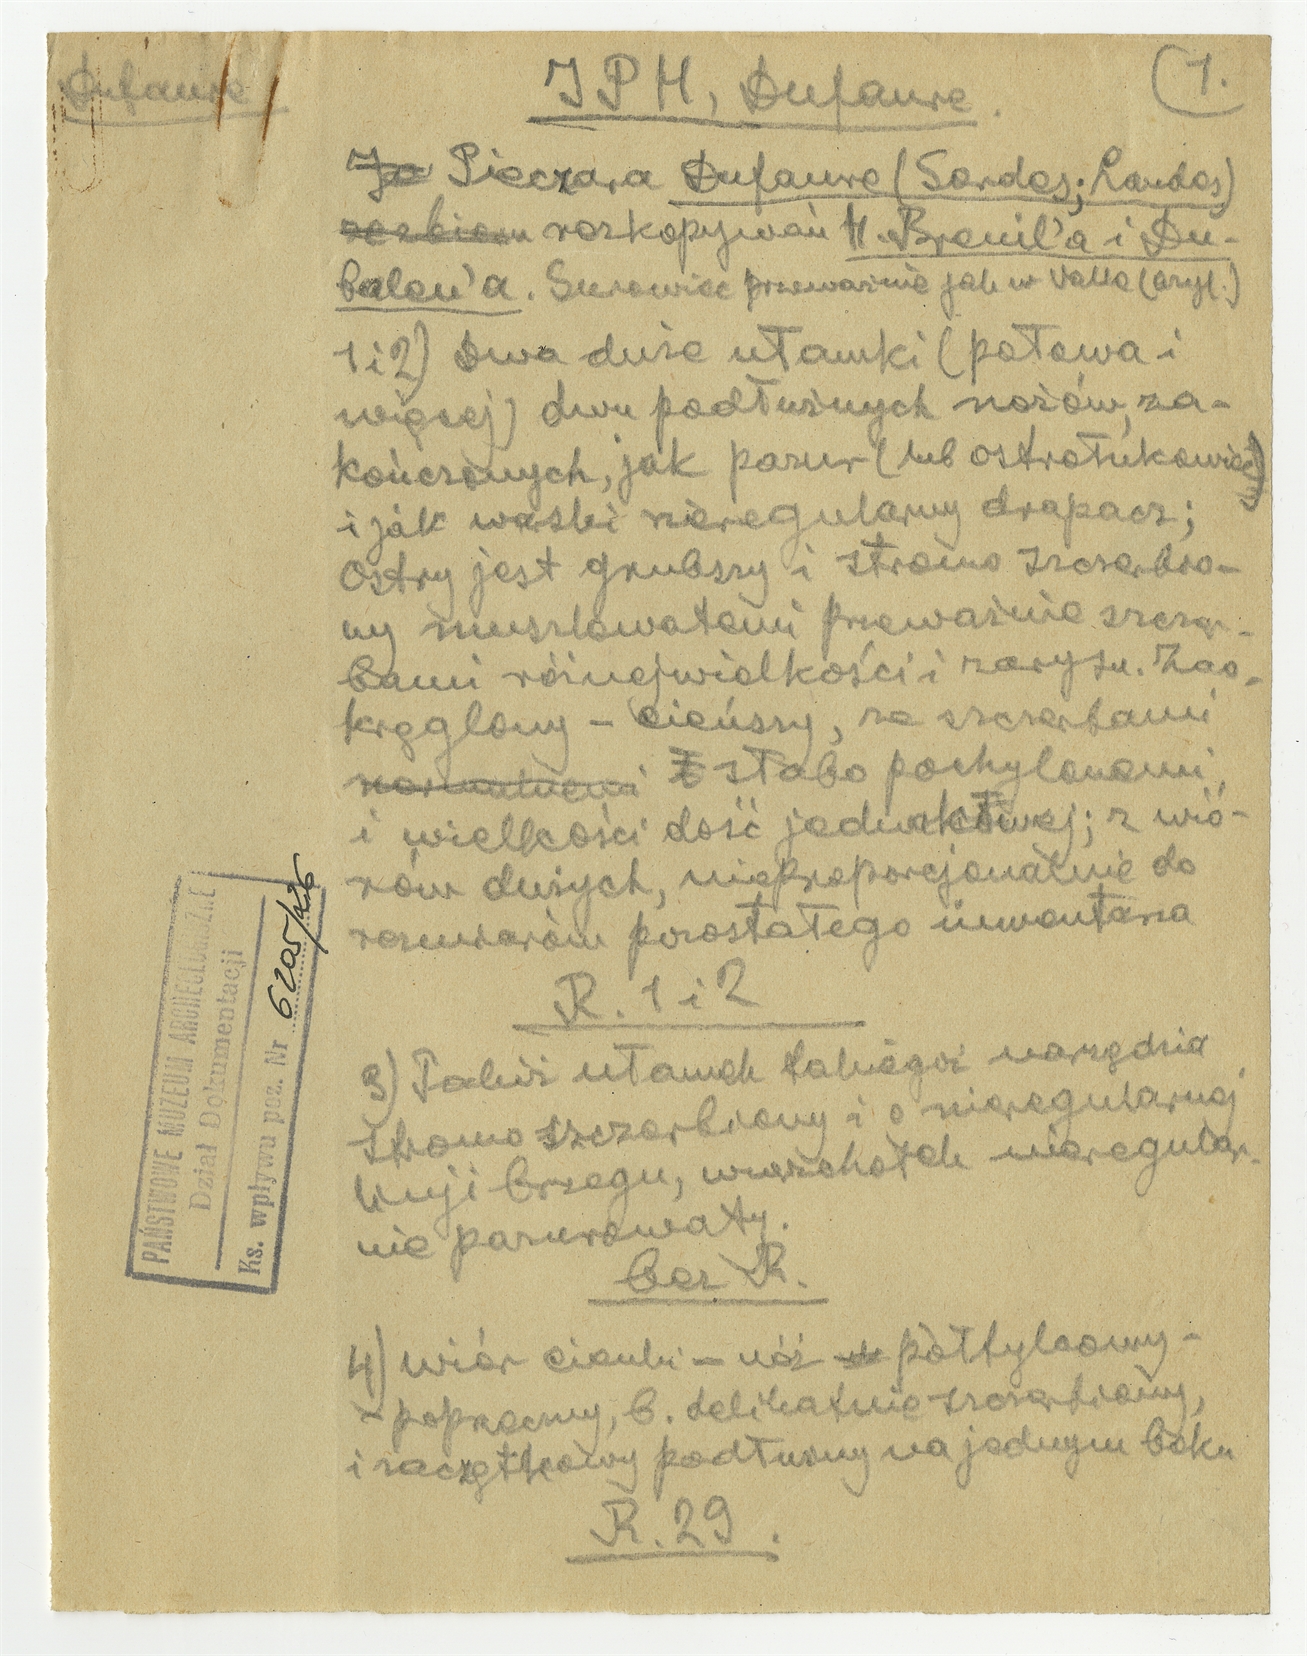 Dufaure
IPH, Dufaure.
(1.
Ja Pieczara Dufaure (Sordes; Landes)
rozkopywań H. Breuil'a i Du-
balen'a. Surowiec przeważnie jak w Valle (azyl.)
1 i 2) Dwa duże ułamki (połowa i
więcej) dwu podłużnych nożów, za-
kończonych, jak pazur (lub ostrołukowiec)
i jak wąski nieregularny drapacz;
Ostry jest grubszy i stromo szczerbio-
ny muszlowatemi przeważnie szczer-
bami różnej wielkości i zarysu. Zao-
krąglony – cieńszy, ze szczerbami
słabo pochylonemi,
i wielkości dość jednakowej; z wió-
rów dużych, nieproporcjonalnie do
rozmiarów pozostałego inwentarza
R. 1 i 2
3) Takiż ułamek takiegoż narzędzia
stromo szczerbiony i o nieregularnej
linji brzegu, wierzchołek nieregular-
nie pazurowaty.
bez R.
4) wiór cienki – nóż półtylcowy-
-poprzeczny, b. delikatnie szczerbiony,
i zaczątkowy podłużny na jednym boku
R. 29.
PAŃSTWOWE MUZEUM ARCHEOLOGICZNE
Dział Dokumentacji
Ks. wpływu poz. Nr 6205/226